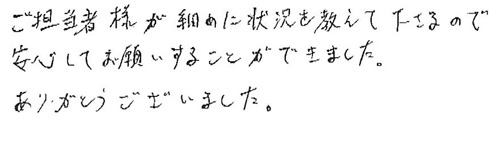 ご担当者様が細めに状況を教えて下さるので
安心してお願いすることができました。
ありがとうございました。